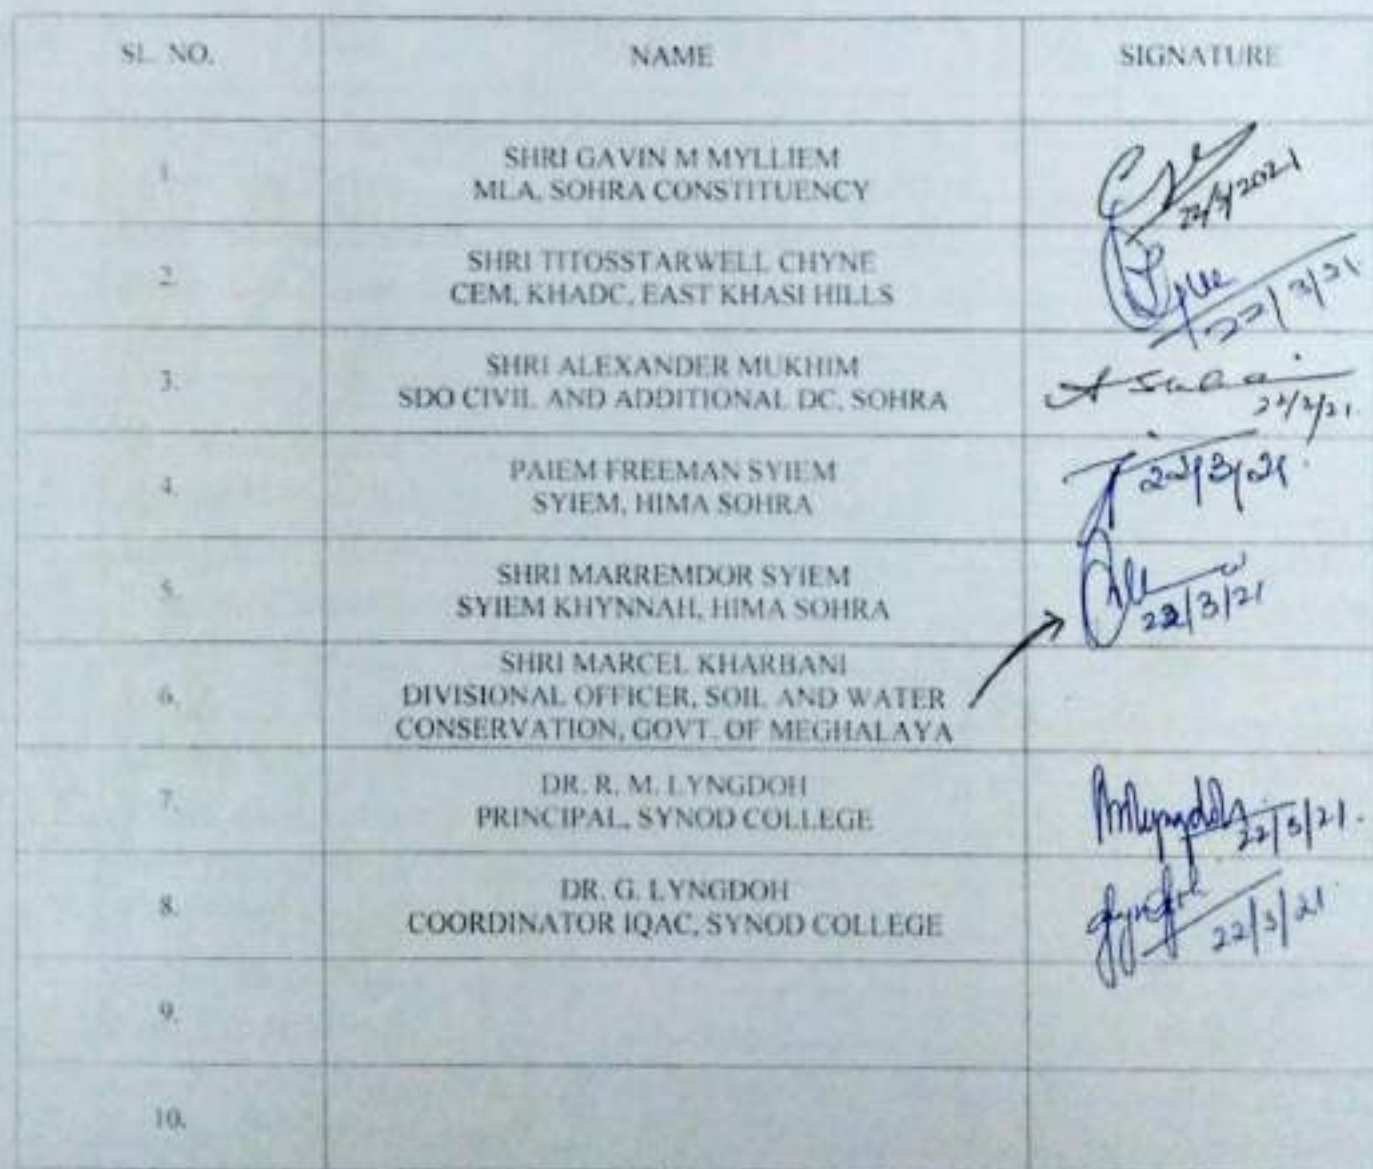 SL. NO.
NAME
SIGNATURE
1.
SHRI GAVIN M MYLLIEM
MLA, SOHRA CONSTITUENCY
22/3/2021
2.
SHRI TITOSSTARWELL CHYNE
CEM, KHADC, EAST KHASI HILLS
22/3/21.
3.
SHRI ALEXANDER MUKHIM
SDO CIVIL AND ADDITIONAL DC, SOHRA
22/3/21.
4.
PAIEM FREEMAN SYIEM
SYIEM, HIMA SOHRA
22/3/21.
5.
SHRI MARREMDOR SYIEM
SYIEM KHYNNAH, HIMA SOHRA
22/3/21
6.
SHRI MARCEL KHARBANI
DIVISIONAL OFFICER, SOIL AND WATER
CONSERVATION, GOVT. OF MEGHALAYA
7.
DR. R. M. LYNGDOH
PRINCIPAL, SYNOD COLLEGE
RMLyngdoh
22/3/21.
8.
DR. G. LYNGDOH
COORDINATOR IQAC, SYNOD COLLEGE
22/3/21
9.
10.